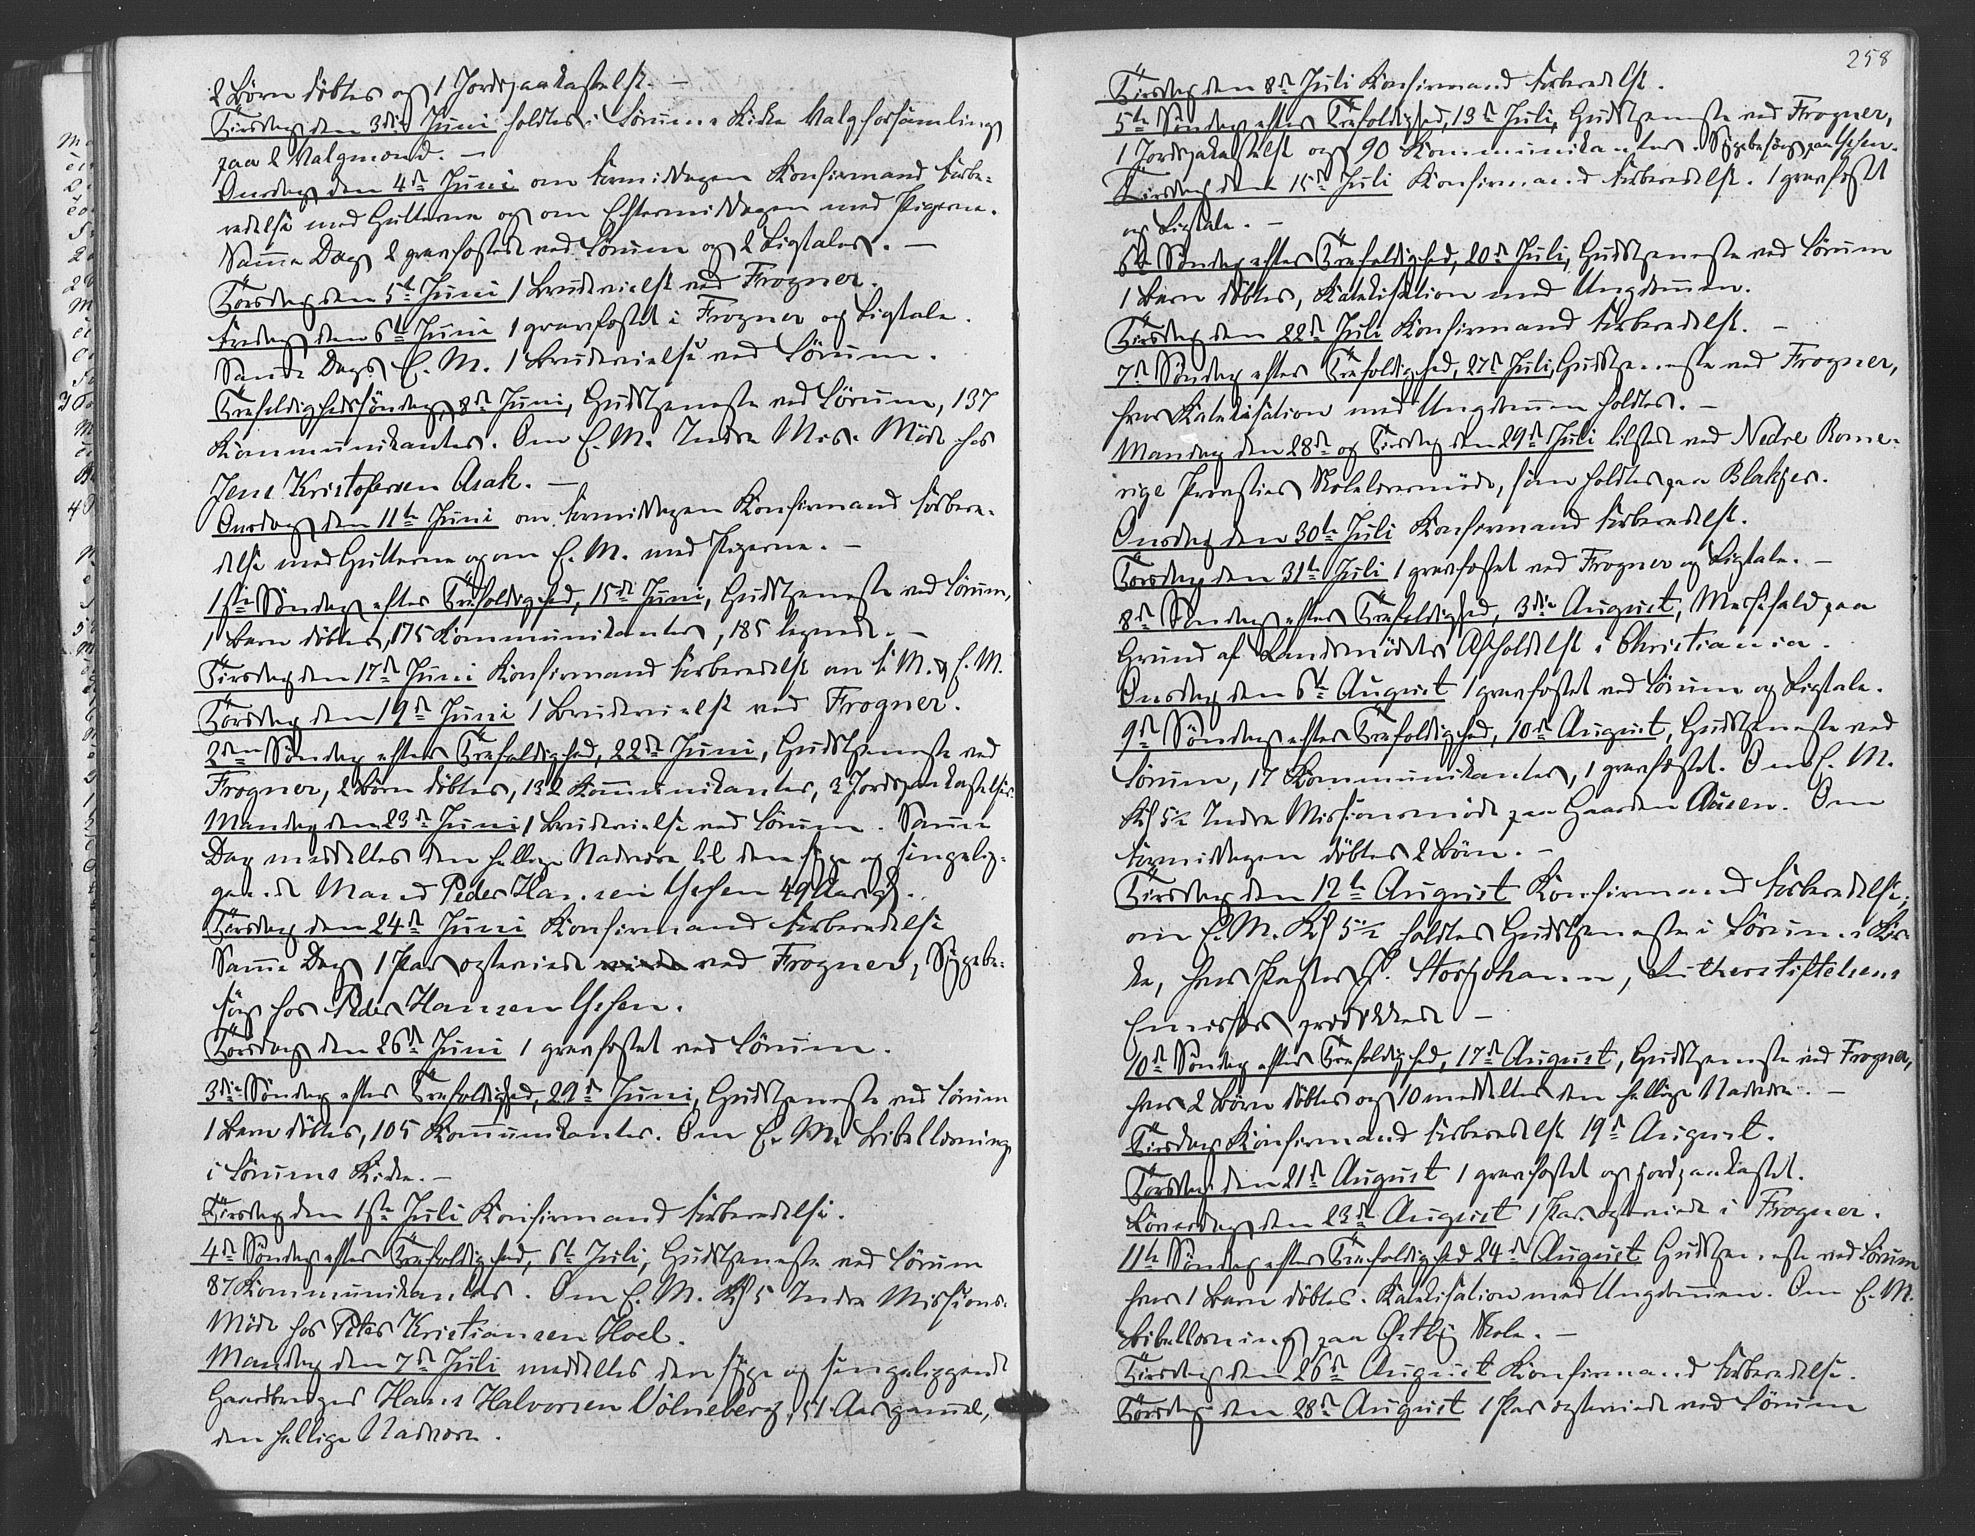 2 Børn døbtes og 1 Jordspaakastelse. —
Tirsdag den 3die Juni holdtes i Sørums Kirke Valgforsamling
paa 2 Valgmænd. —
Onsdag den 4de Juni om Formiddagen Konfirmand Forbe-
redelse med Gutterne og om Eftermiddagen med Pigerne.
Samme Dag 2 gravfæstet ved Sørum og 2 Ligtaler. —
Torsdag den 5te Juni 1 Brudevielse ved Frogner.
Fredag den 6te Juni 1 gravfæstet i Frogner og Ligtale.
Samme Dags E. M. 1 Brudevielse ved Sørum.
Trefoldighedssøndag, 8de Juni, Gudstjeneste ved Sørum, 137
Kommunikanter. Om E. M. Indre Mis. Møde hos
Jens Kristofersen Asak. —
Onsdag den 11te Juni om Formiddagen Konfirmand Forbere-
delse med Gutterne og om E. M. med Pigerne. —
1ste Søndag efter Trefoldighed, 15de Juni, Gudstjeneste ved Sørum,
1 Barn døbtes, 175 Kommunikanter, 185 —
Tirsdag den 17de Juni Konfirmand Forberedelse om F. M. & E. M.
Torsdag den 19de Juni 1 Brudevielse ved Frogner.
2den Søndag efter Trefoldighed, 22de Juni, Gudstjeneste ved
Frogner, 2 Børn døbtes, 132 Kommunikanter, 3 Jordspaakastelser.
Mandag den 23de Juni 1 Brudevielse ved Sørum. Samme
Dag meddeltes den hellige Nadvere til den syge og sengelig-
gende Mand Peder Hansen 49 Aar gl.
Tirsdag den 24de Juni Konfirmand Forberedelse
Samme Dag 1 Par ægteviede ved Frogner, Sygebe-
søg hos Peder Hansen
Torsdag den 26de Juni 1 gravfæstet ved Sørum.
3die Søndag efter Trefoldighed, 29de Juni, Gudstjeneste ved Sørum
1 Barn døbtes, 105 Kommunikanter. Om E. M. Bibellæsning
i Sørums Kirke. —
Tirsdag den 1ste Juli Konfirmand Forberedelse.
4de Søndag efter Trefoldighed, 6te Juli, Gudstjeneste ved Sørum
87 Kommunikanter. Om E. M. Kl 5 Indre Missions-
Møde hos Peter Kristiansen Hoel.
Mandag den 7de Juli meddeltes den syge og sengeliggende
Gaardbruger Hans Halvorsen Vølneberg, 51 Aar gammel,
den hellige Nadvere.
258
Tirsdag den 8de Juli Konfirmand Forberedelse.
5te Søndag efter Trefoldighed, 13de Juli, Gudstjeneste ved Frogner,
1 Jordspaakastelse og 90 Kommunikanter. Sygebesøg paa
Tirsdag den 15de Juli Konfirmand Forberedelse. 1 gravfæstet
og Ligtale. —
6te Søndag efter Trefoldighed, 20de Juli, Gudstjeneste ved Sørum
1 Barn døbtes, Katekisation med Ungdommen.
Tirsdag den 22de Juli Konfirmand Forberedelse. —
7de Søndag efter Trefoldighed, 27de Juli, Gudstjeneste ved Frogner,
hvor Katekisation med Ungdommen holdtes. —
Mandag den 28de og Tirsdag den 29de Juli tilstede ved Nedre Rome-
rige Provsties Skolelærermøde, som holdtes paa Blakjer.
Onsdag den 30te Juli Konfirmand Forberedelse.
Torsdag den 31te Juli 1 gravfæstet ved Frogner og Ligtale. —
8de Søndag efter Trefoldighed, 3die August, Messefald paa
Grund af Landsmødets Afholdelse i Christiania.
Onsdag den 6te August 1 gravfæstet ved Sørum og Ligtale.
9de Søndag efter Trefoldighed, 10de August, Gudstjeneste ved
Sørum, 17 Kommunikanter, 1 gravfæstet. Om E. M.
Kl 5½ Indre Missionsmøde paa Gaarden Ausen. Om
Formiddagen døbtes 2 Børn. —
Tirsdag den 12te August Konfirmand Forberedelse,
om E. M. Kl 5½ holdtes Gudstjeneste i Sørums Kir-
ke, hvor Pastor Storjohann, Lutherstiftelsens
Emissær prædikede —
10de Søndag efter Trefoldighed, 17de August, Gudstjeneste ved Frogner,
hvor 2 Børn døbtes og 10 meddeltes den hellige Nadvere. —
Tirsdag Konfirmand Forberedelse 19de August.
Torsdag den 21de August 1 gravfæstet og jordpaakastet.
Lørerdag den 23de August 1 Par ægteviede i Frogner.
11te Søndag efter Trefoldighed 24de August Gudstjeneste ved Sørum
hvor 1 Barn døbtes. Katekisation med Ungdommen. Om E. M.
Bibellæsning paa Østby Skole. —
Tirsdag den 26de August Konfirmand Forberedelse.
Torsdag den 28de August 1 Par ægteviede ved Sørum